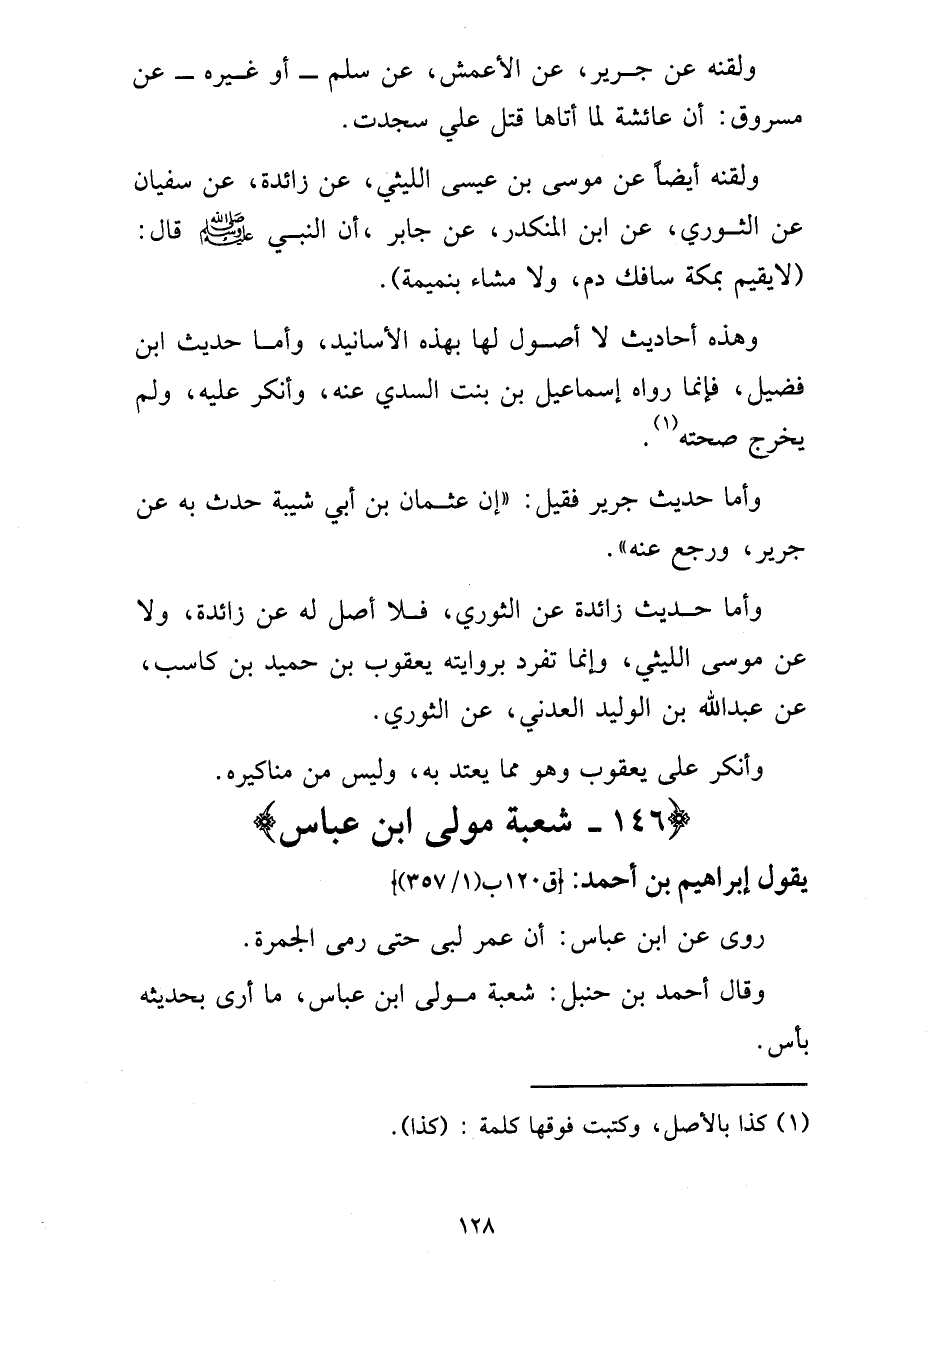 ولقنه عن جـرير، عن الأعمش، عن سلم ـ أو غـيره ـ عن
مسروق: أن عائشة لما أتاها قتل علي سجدت.
ولقنه أيضاً عن موسى بن عيسى الليثي، عن زائدة، عن سفيان
عن الثـوري، عن ابن المنكدر، عن جابر ،أن النبـي ﷺ قال:
(لايقيم بمكة سافك دم، ولا مشاء بنميمة).
وهذه أحاديث لا أصـول لها بهذه الأسانيد، وأمـا حديث ابن
فضيل، فإنما رواه إسماعيل بن بنت السدي عنه، وأنكر عليه، ولم
يخرج صحته(١).
وأما حديث جرير فقيل: «إن عثـمان بن أبي شيبة حدث به عن
جرير، ورجع عنه».
وأما حـديث زائدة عن الثوري، فـلا أصل له عن زائدة، ولا
عن موسى الليثي، وإنما تفرد بروايته يعقوب بن حميد بن كاسب،
عن عبدالله بن الوليد العدني، عن الثوري.
وأنكر على يعقوب وهو مما يعتد به، وليس من مناكيره.
﴿١٤٦ - شعبة مولى ابن عباس﴾
يقول إبراهيم بن أحمد: {ق١٢٠ب(١/ ٣٥٧)}
روى عن ابن عباس: أن عمر لبى حتى رمى الجمرة.
وقال أحمد بن حنبل: شعبة مـولى ابن عباس، ما أرى بحديثه
بأس.
(١) كذا بالأصل، وكتبت فوقها كلمة : (كذا).
١٢٨